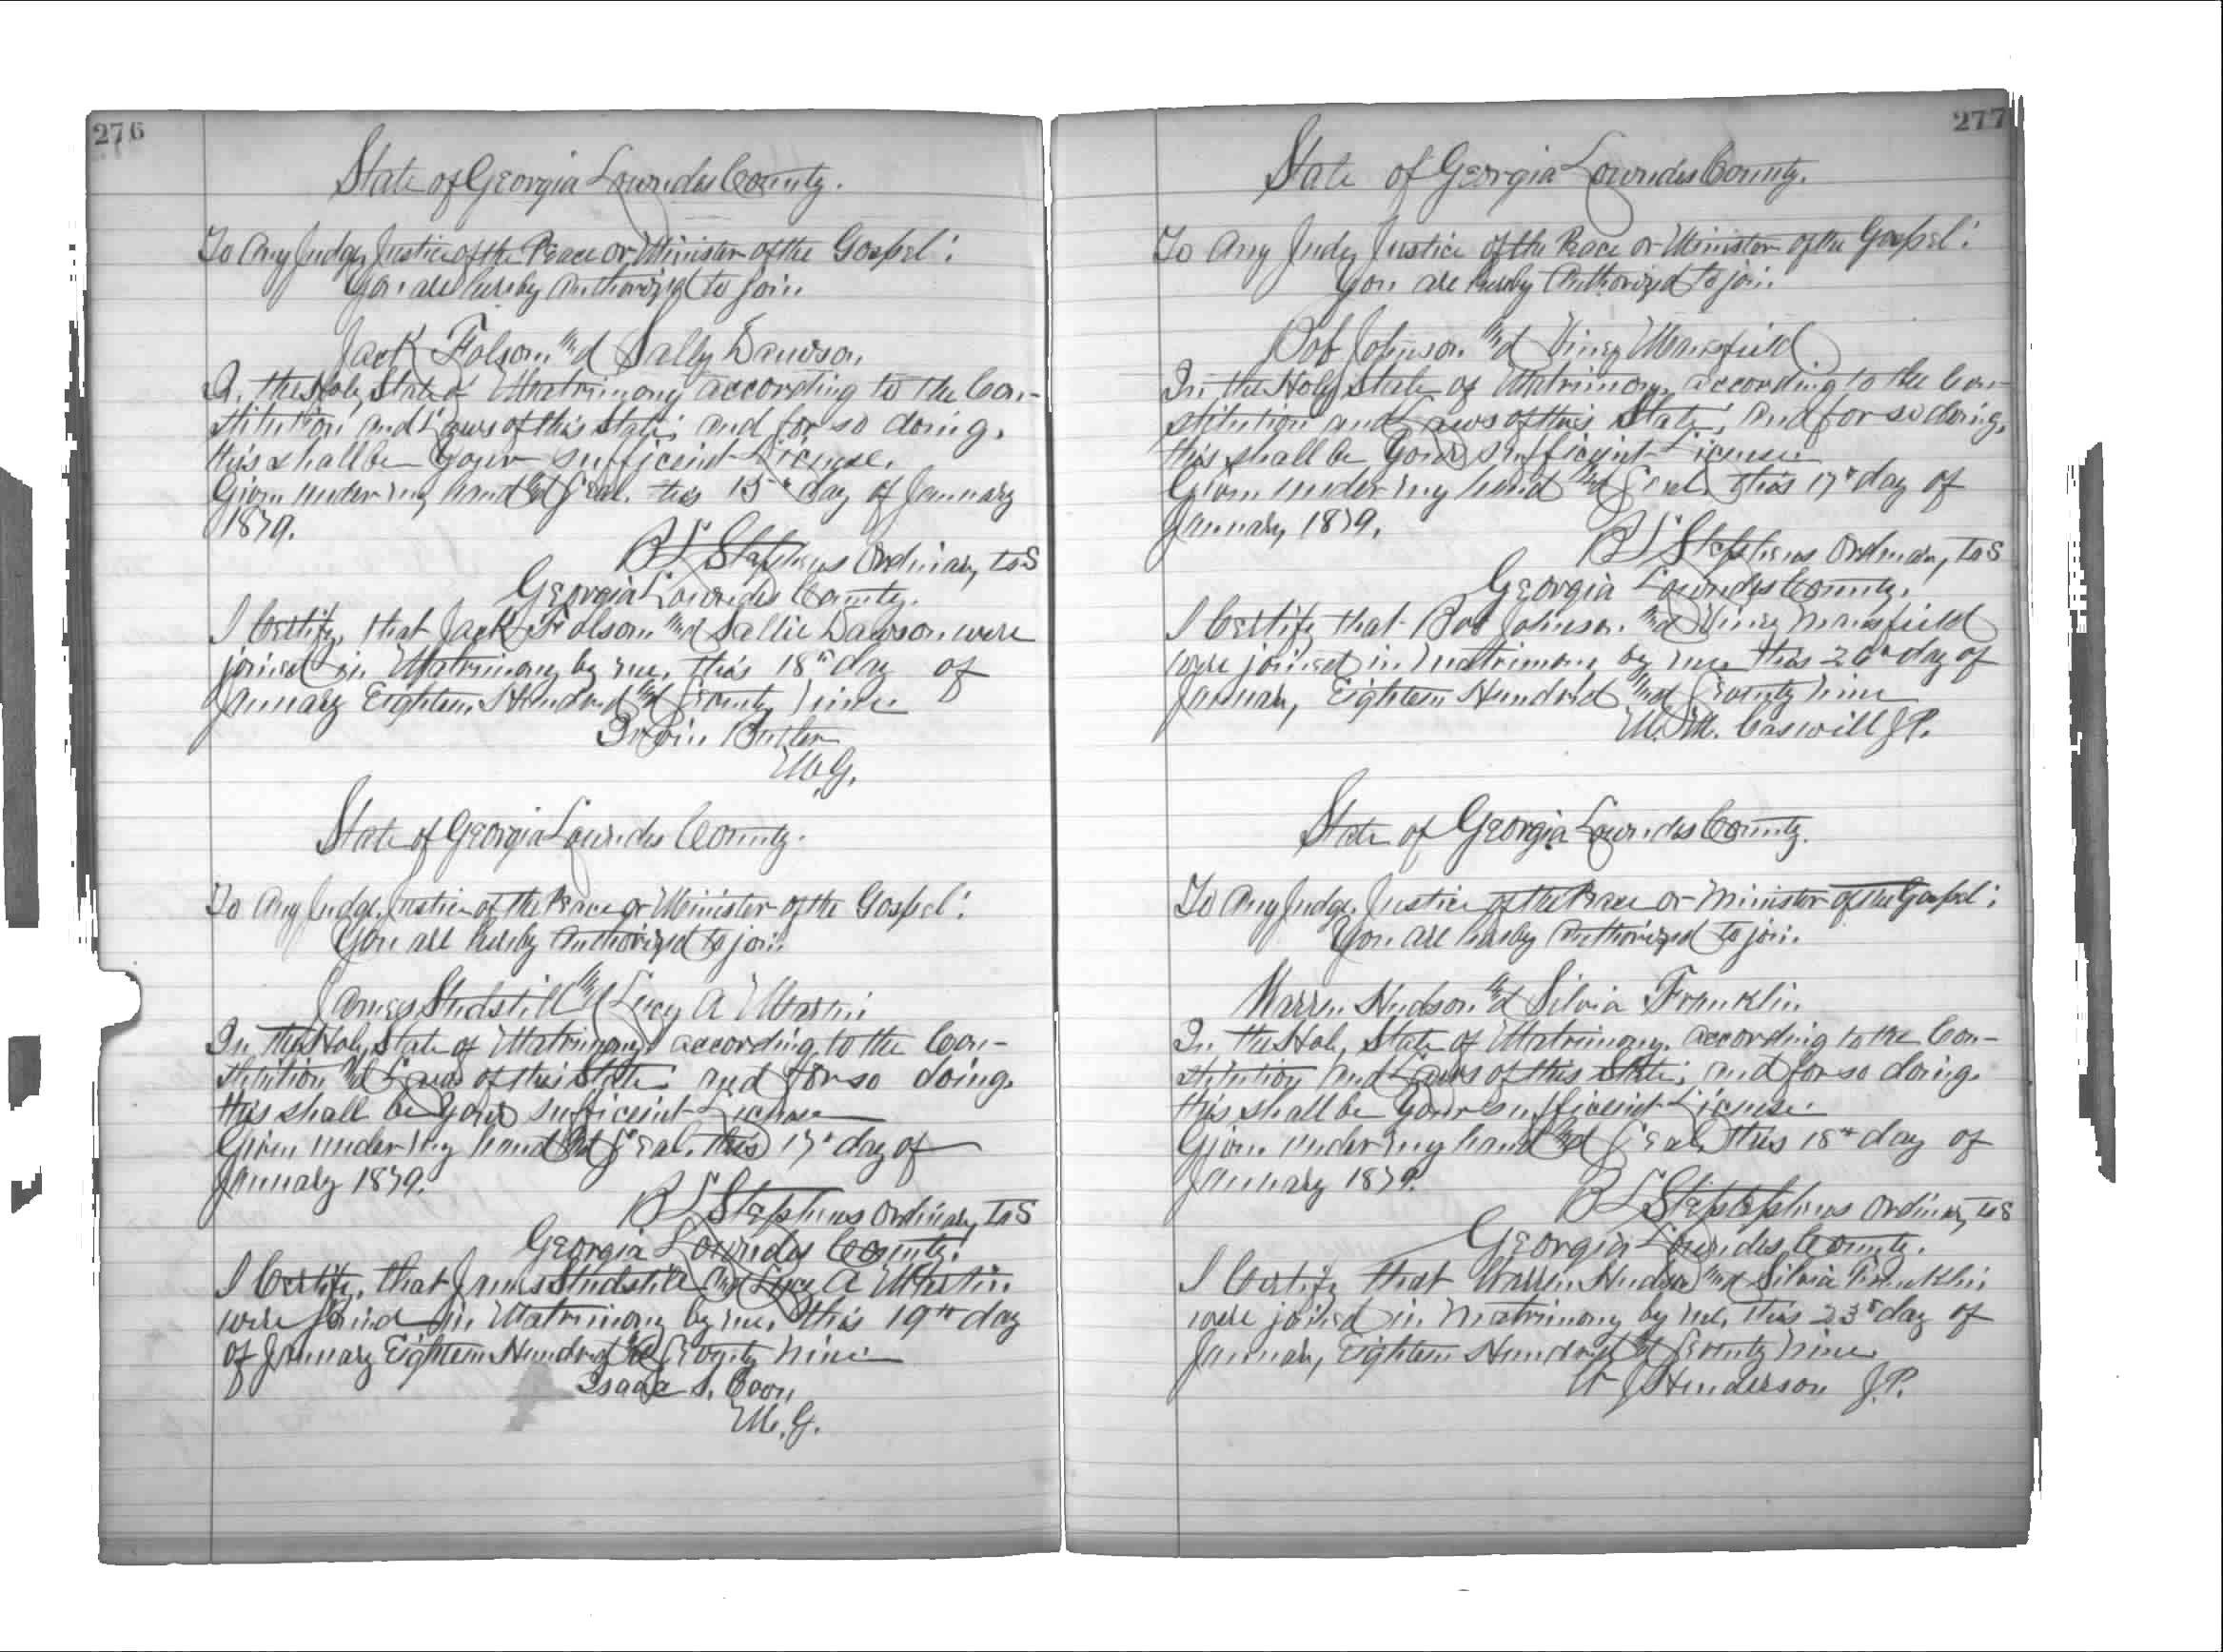 276
State of Georgia Lowndes County.
To Any Judge, Justice of the Peace or Minister of the Gospel:
You are hereby authorized to join
Jack Folsom and Sally Dawson
In the Holy State of Matrimony according to the Con-
stitution and Laws of this State; and for so doing,
this shall be your sufficient License.
Given under my hand and Seal, this 15th day of January
1879.
Ordinary, L.S
Georgia Lowndes County.
I Certify, that Jack Folsom and Sallie Dawson were
joined in Matrimony by me, this 18th day of
January Eighteen Hundred and Seventy Nine
Irvin Butler
M.G.
State of Georgia Lowndes County.
To Any Judge, Justice of the Peace or Minister of the Gospel:
You are hereby authorized to join
James Studstill and Lucy A Martin
In the Holy State of Matrimony according to the Con-
stitution and Laws of this State; and for so doing,
this shall be your sufficient License
Given under my hand and Seal, this 17th day of
January 1879.
Stephens Ordinary, L.S
Georgia Lowndes County.
I Certify, that James Studstill and Lucy A Martin
were joined in Matrimony by me, this 19th day
of January Eighteen Hundred and Seventy Nine
Isaac S. Coon
M.G.
277
State of Georgia Lowndes County.
To Any Judge Justice of the Peace or Minister of the Gospel:
You are hereby authorized to join
Bob Johnson and Viney Mansfield
In the Holy State of Matrimony, according to the Con-
stitution and Laws of this State; and for so doing,
this shall be your sufficient License
Given under my hand and Seal, this 17th day of
January, 1879.
Stephens Ordinary, L.S
Georgia Lowndes County.
I Certify that Bob Johnson and Viney Mansfield
were joined in Matrimony by me this 26th day of
January, Eighteen Hundred and Seventy Nine
M. M. Caswill J.P.
State of Georgia Lowndes County.
To Any Judge, Justice of the Peace or Minister of the Gospel:
You are hereby authorized to join
Warren Hudson and Silvia Franklin
In the Holy State of Matrimony, according to the Con-
stitution and Laws of this State; and for so doing,
this shall be your sufficient License.
Given under my hand and Seal, this 18th day of
January 1879.
Ordinary, L.S
Georgia Lowndes County.
I Certify that Warren Hudson and Silvia Franklin
were joined in Matrimony by me, this 23d day of
January, Eighteen Hundred and Seventy Nine
Henderson J.P.